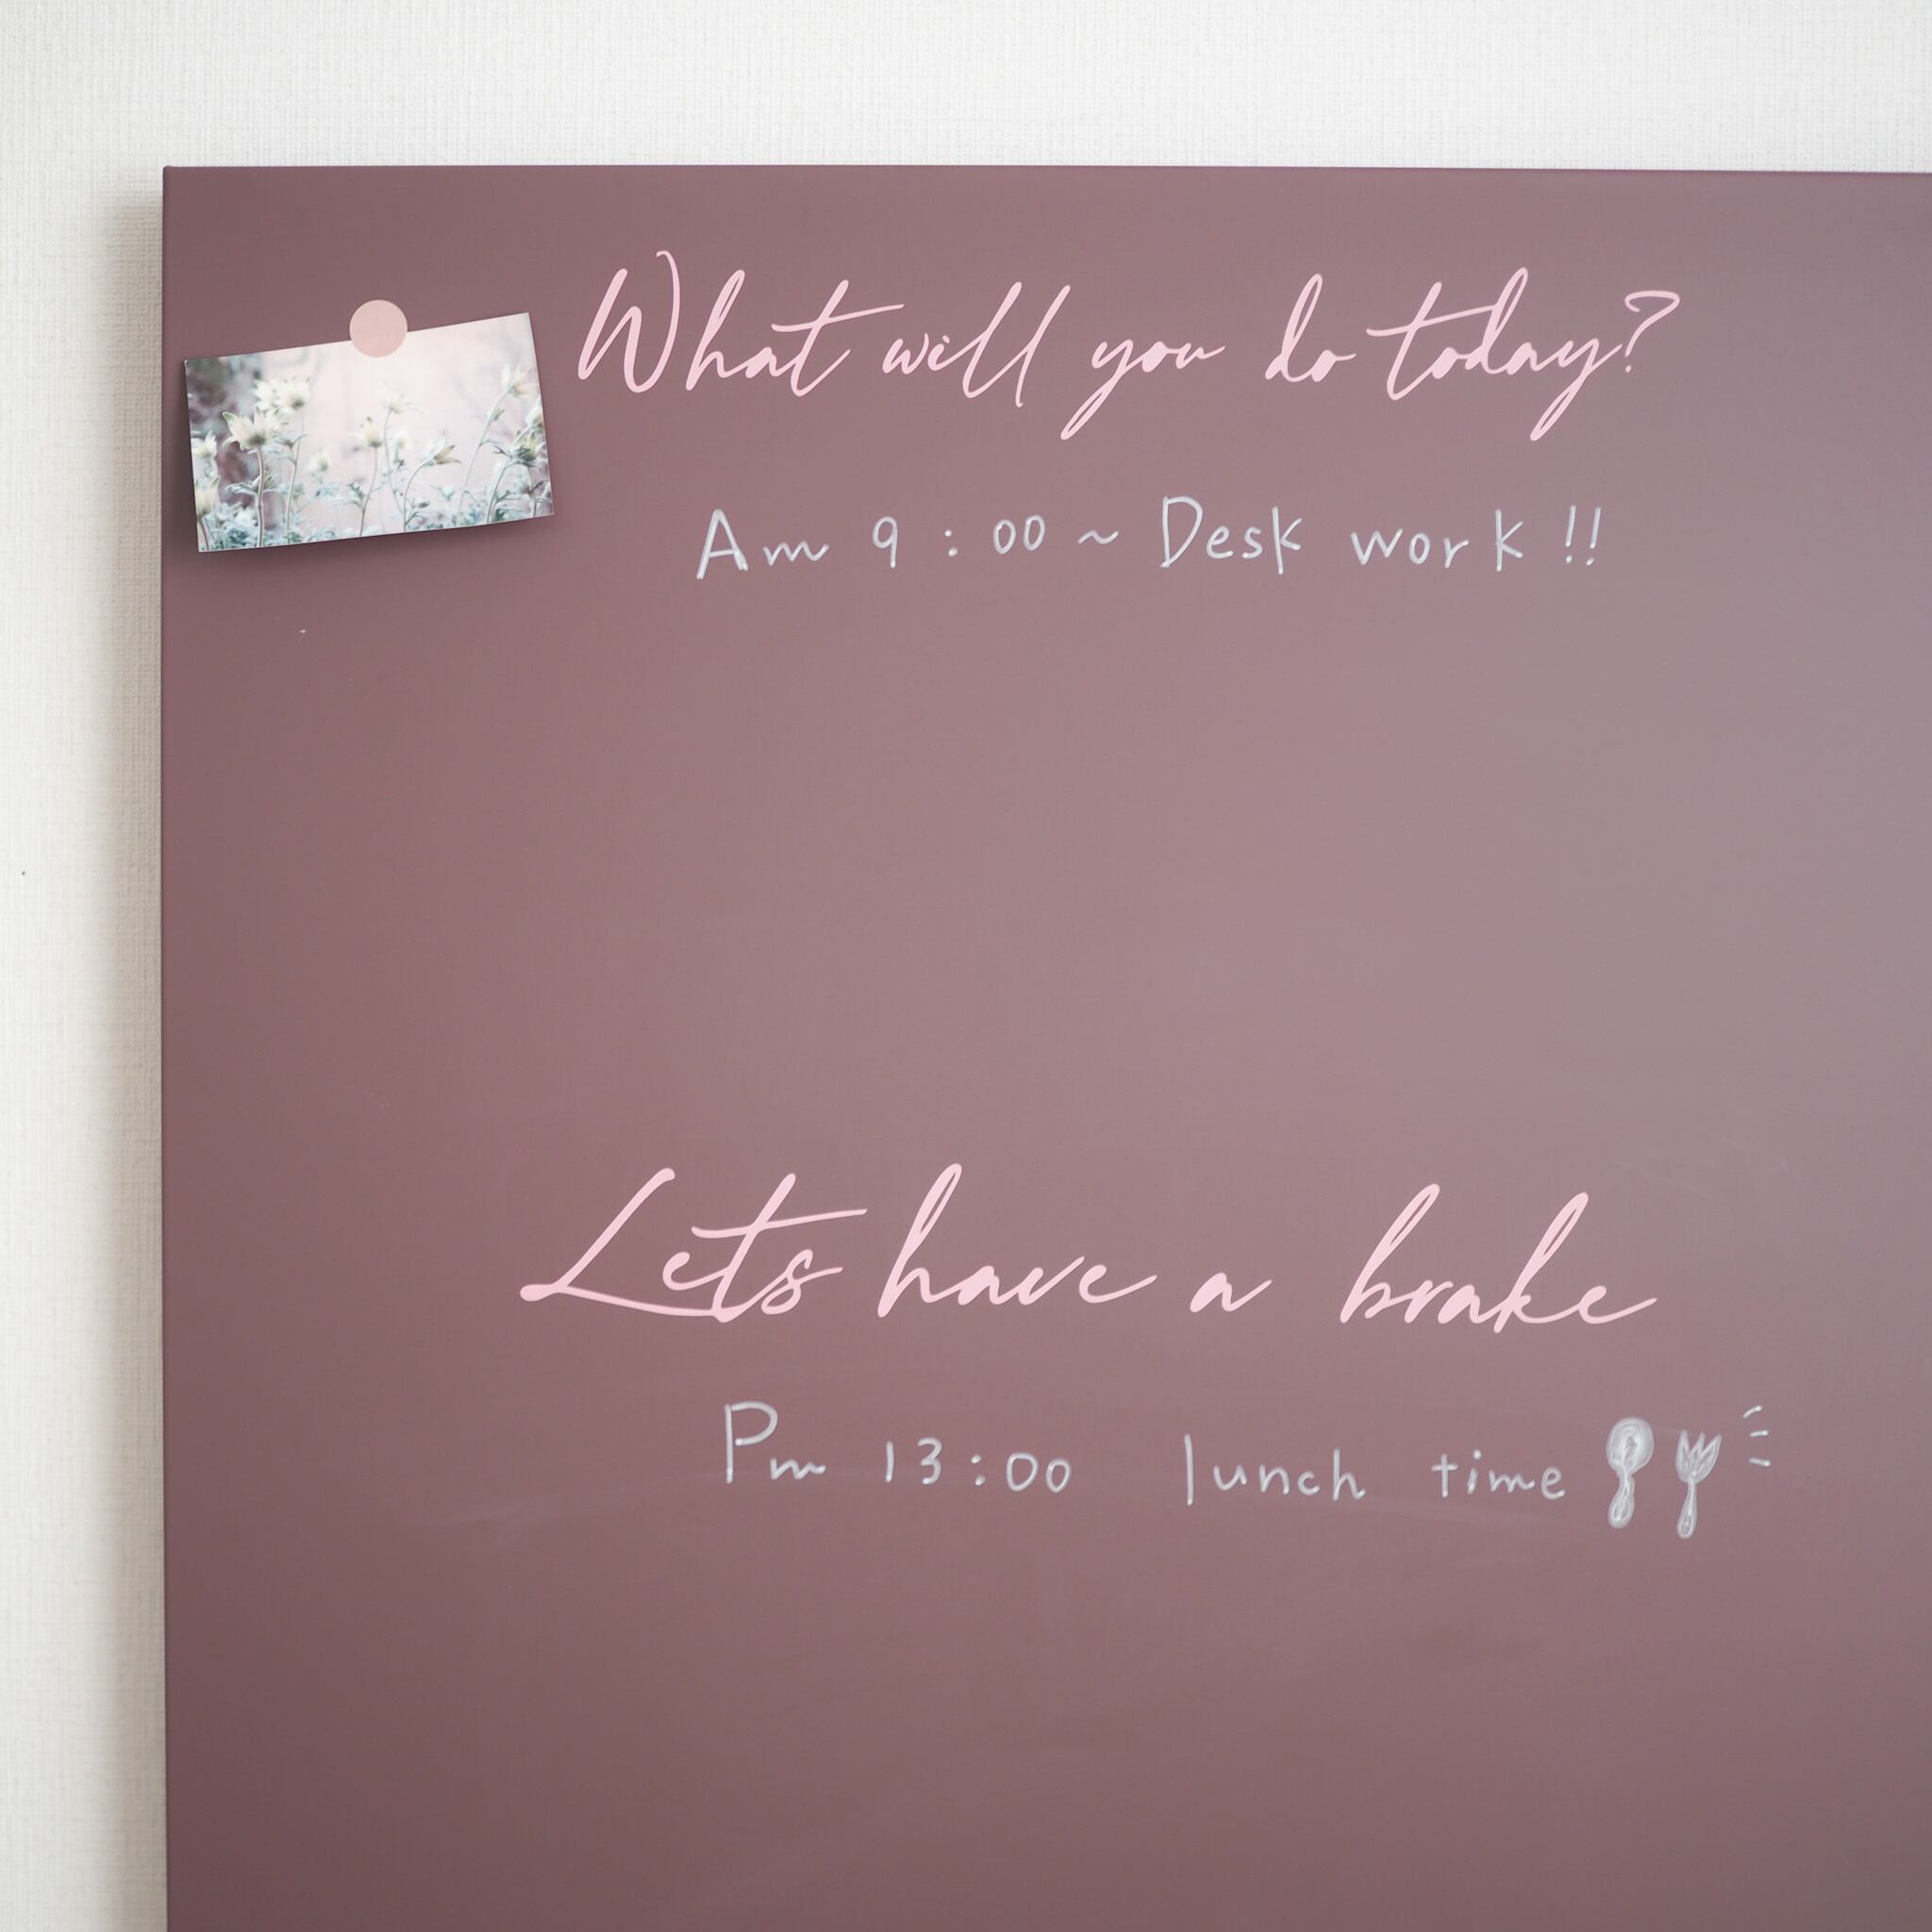 What will you do today?
Am 9:00~Desk work!!
Lets have a brake
Pm 13:00 lunch time